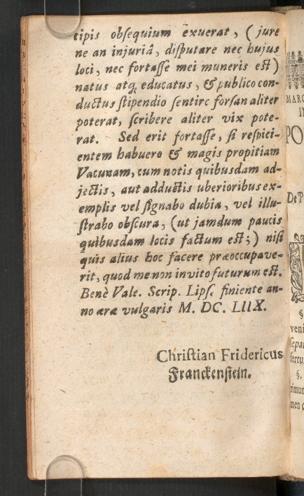 tipis obſequium exuerat, (jure
ne an injuriâ, diſputare nec hujus
loci, nec fortaſſe mei muneris eſt)
natus atq; educatus, & publico con-
ductus ſtipendio ſentire forſan aliter
poterat, ſcribere aliter vix pote-
rat. Sed erit fortaſſe, ſi reſpici-
entem habuero & magis propitiam
Vacunam, cum notis quibusdam ad-
jectis, aut adductis uberioribus ex-
emplis vel ſignabo dubia, vel illu-
ſtrabo obſcura, (ut jamdum paucis
quibusdam locis factum eſt;) niſi
quis alius hoc facere præoccupave-
rit, quod me non invito futurum eſt.
Benè Vale. Scrip. Lipſ. finiente an-
no æræ vulgaris M. DC. LIIX.
Chriſtian Fridericus
Franckenſtein.
MARC
IN
PO
De P
§
veni